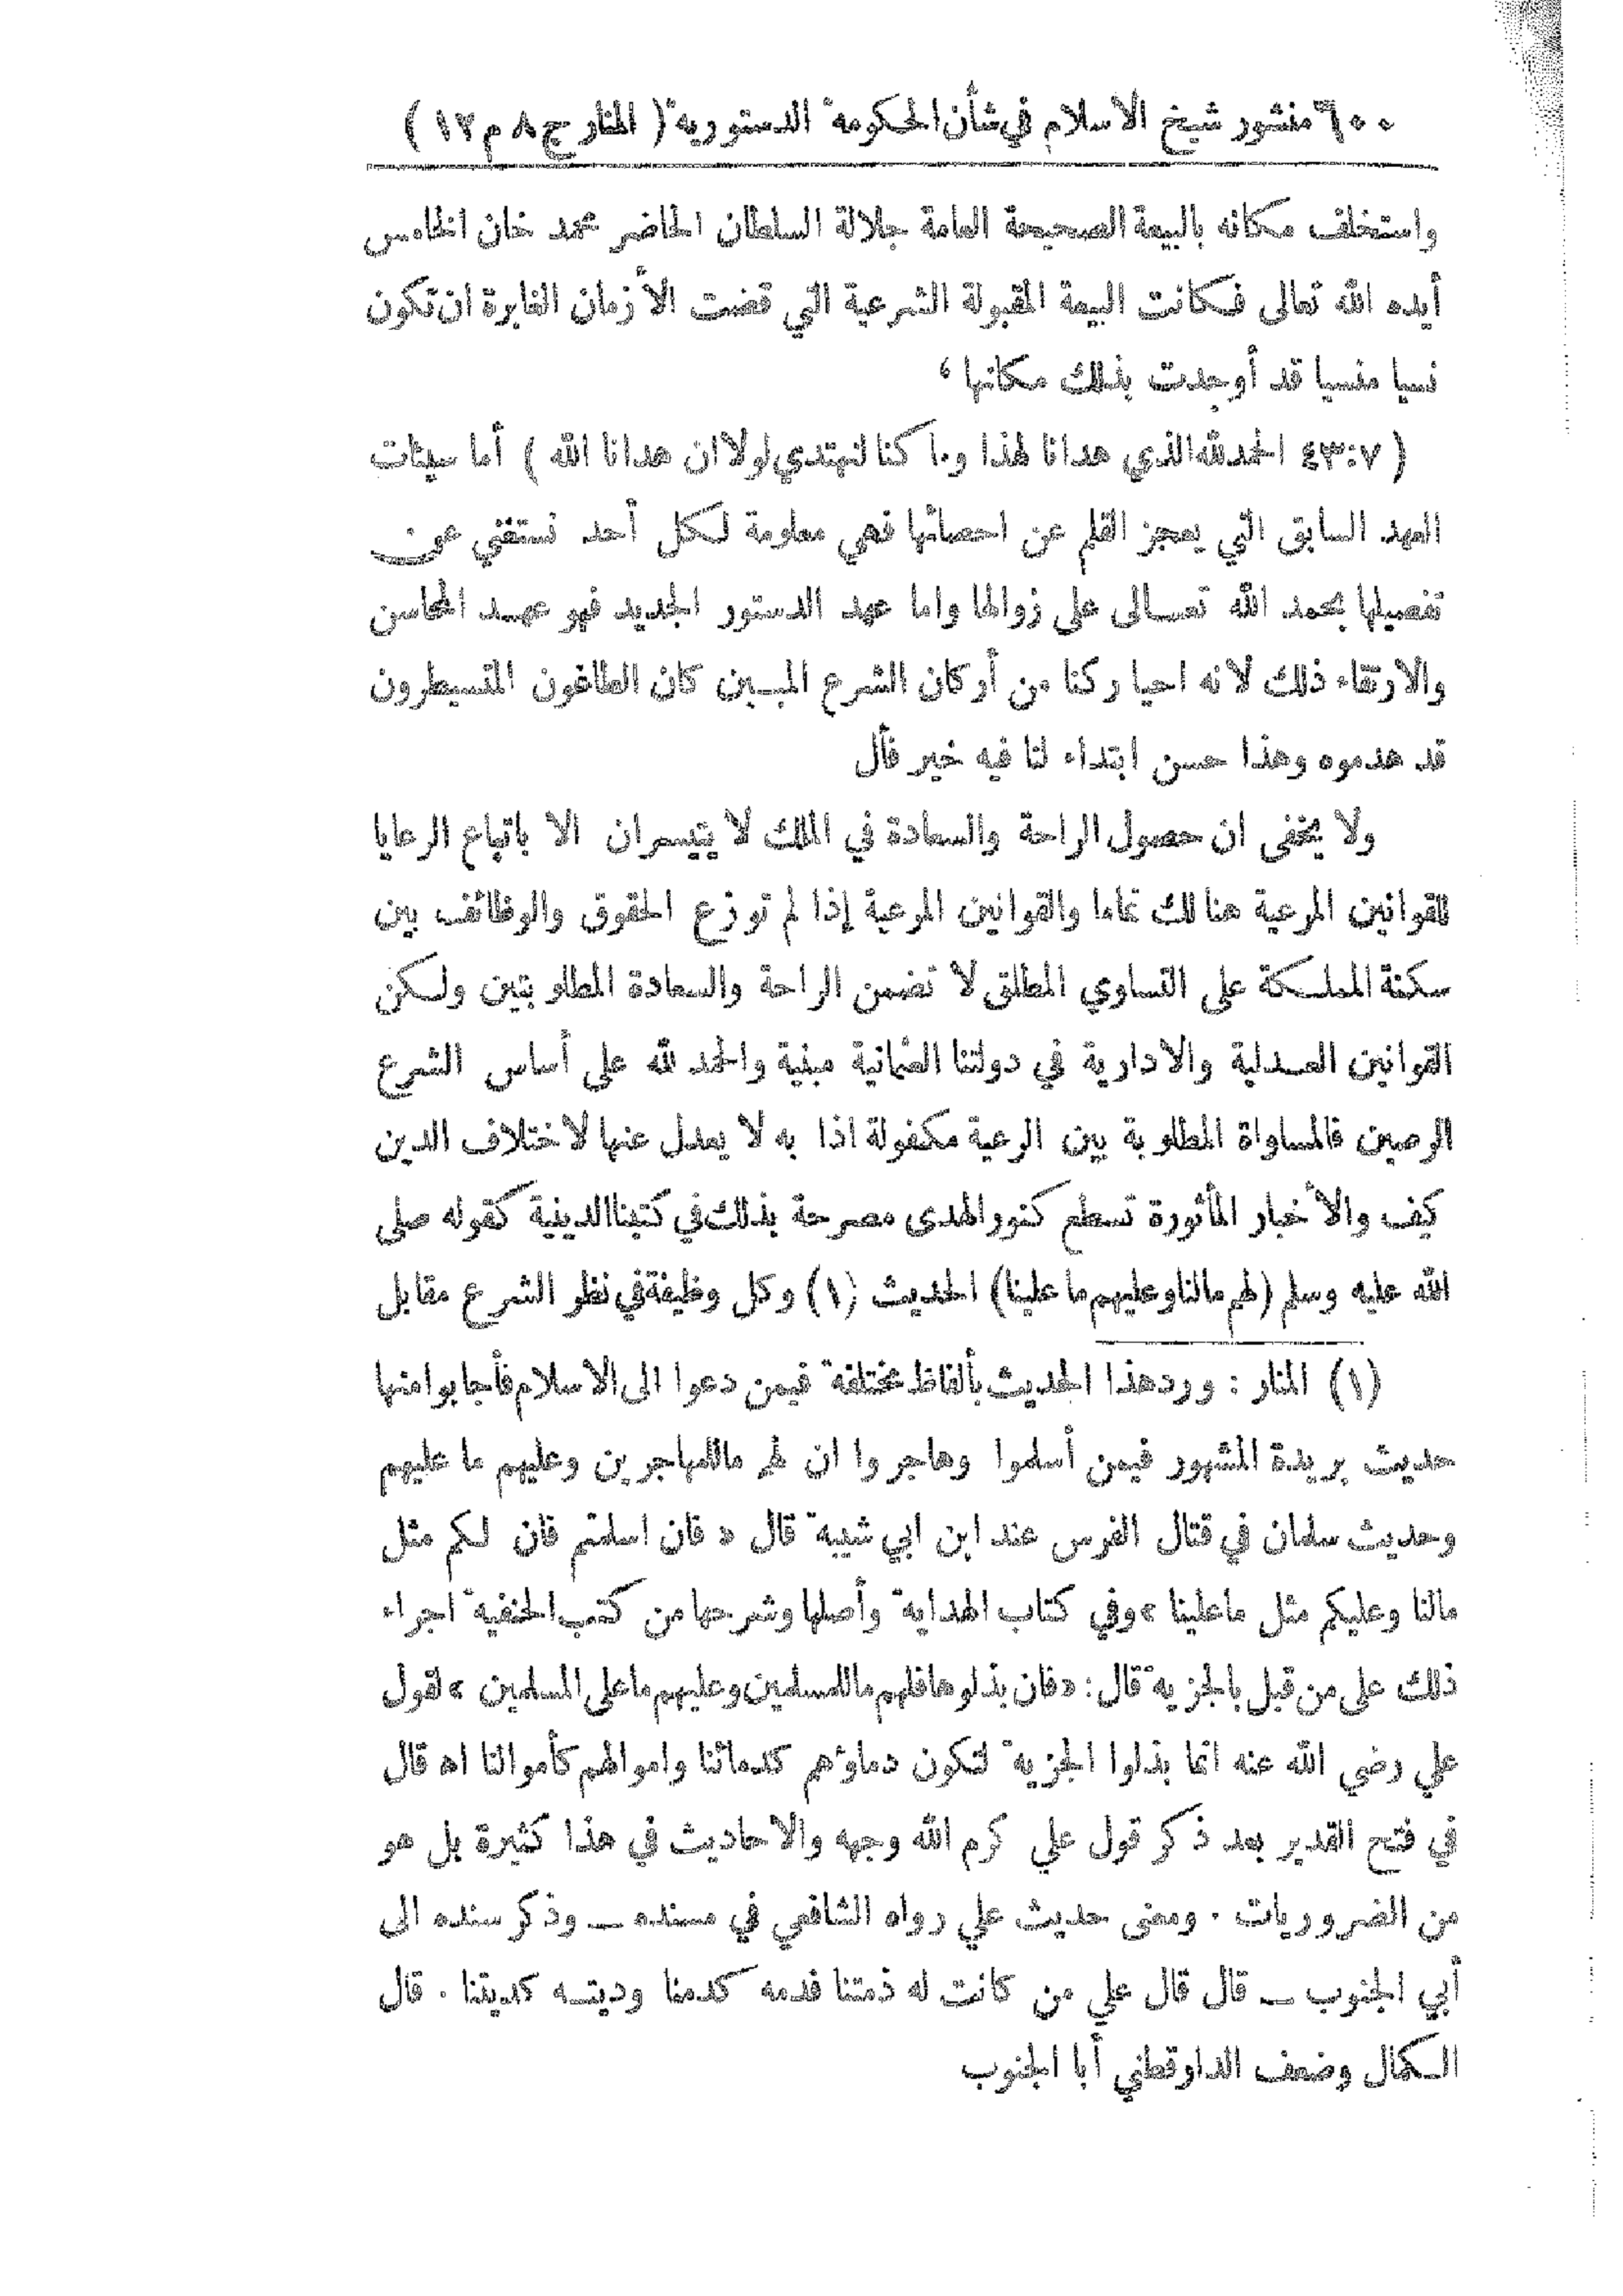 ٦٠٠ منشور شيخ الاسلام في شأن الحكومة الدستورية ( المنار ج ٨ م ١٢ )
واستخلف مكانه بالبيعة الصحيحة العامة جلالة السلطان الحاضر محمد خان الخامس
أيده الله تعالى فكانت البيعة المقبولة الشرعية التي قضت الأزمان الغابرة ان تكون
نسيا منسيا قد أوجدت بذلك مكانها ،
( ٤٣:٧ الحمد لله الذي هدانا لهذا وما كنا لنهتدي لولا ان هدانا الله ) أما سيئات
العهد السابق التي يعجز القلم عن احصائها فهي معلومة لكل أحد نستغني عن
تفصيلها بحمد الله تعالى على زوالها واما عهد الدستور الجديد فهو عهد المحاسن
والارتقاء ذلك لانه احيا ركنا من أركان الشرع المبين كان الطاغون المتسيطرون
قد هدموه وهذا حسن ابتداء لنا فيه خير فأل
ولا يخفى ان حصول الراحة والسعادة في الملك لا يتيسران الا باتباع الرعايا
للقوانين المرعية هنالك تماما والقوانين المرعية إذا لم توزع الحقوق والوظائف بين
سكنة المملكة على التساوي المطلق لا تضمن الراحة والسعادة المطلوبتين ولكن
القوانين العدلية والادارية في دولتنا العثمانية مبنية والحمد لله على أساس الشرع
الرصين فالمساواة المطلوبة بين الرعية مكفولة اذا به لا يعدل عنها لاختلاف الدين
كيف والأخبار المأثورة تسطع كنور الهدى مصرحة بذلك في كتبنا الدينية كقوله صلى
الله عليه وسلم (لهم مالنا وعليهم ما علينا) الحديث (١) وكل وظيفة في نظر الشرع مقابل
(١) المنار : ورد هذا الحديث بألفاظ مختلفة فيمن دعوا الى الاسلام فأجابوا منها
حديث بريدة المشهور فيمن أسلموا وهاجروا ان لهم ما للمهاجرين وعليهم ما عليهم
وحديث سلمان في قتال الفرس عند ابن ابي شيبة قال « فان اسلمتم فان لكم مثل
مالنا وعليكم مثل ما علينا » وفي كتاب الهداية وأصلها وشرحها من كتب الحنفية اجراء
ذلك على من قبل بالجزية قال : « فان بذلوها فلهم ما للمسلمين وعليهم ما على المسلمين » لقول
علي رضي الله عنه انما بذلوا الجزية لتكون دماؤهم كدمائنا واموالهم كأموالنا اه قال
في فتح القدير بعد ذكر قول علي كرم الله وجهه والاحاديث في هذا كثيرة بل هو
من الضروريات . ومعنى حديث علي رواه الشافعي في مسنده ــ وذكر سنده الى
أبي الجنوب ــ قال قال علي من كانت له ذمتنا فدمه كدمنا وديته كديتنا . قال
الكمال وضعف الداوقطني أبا الجنوب